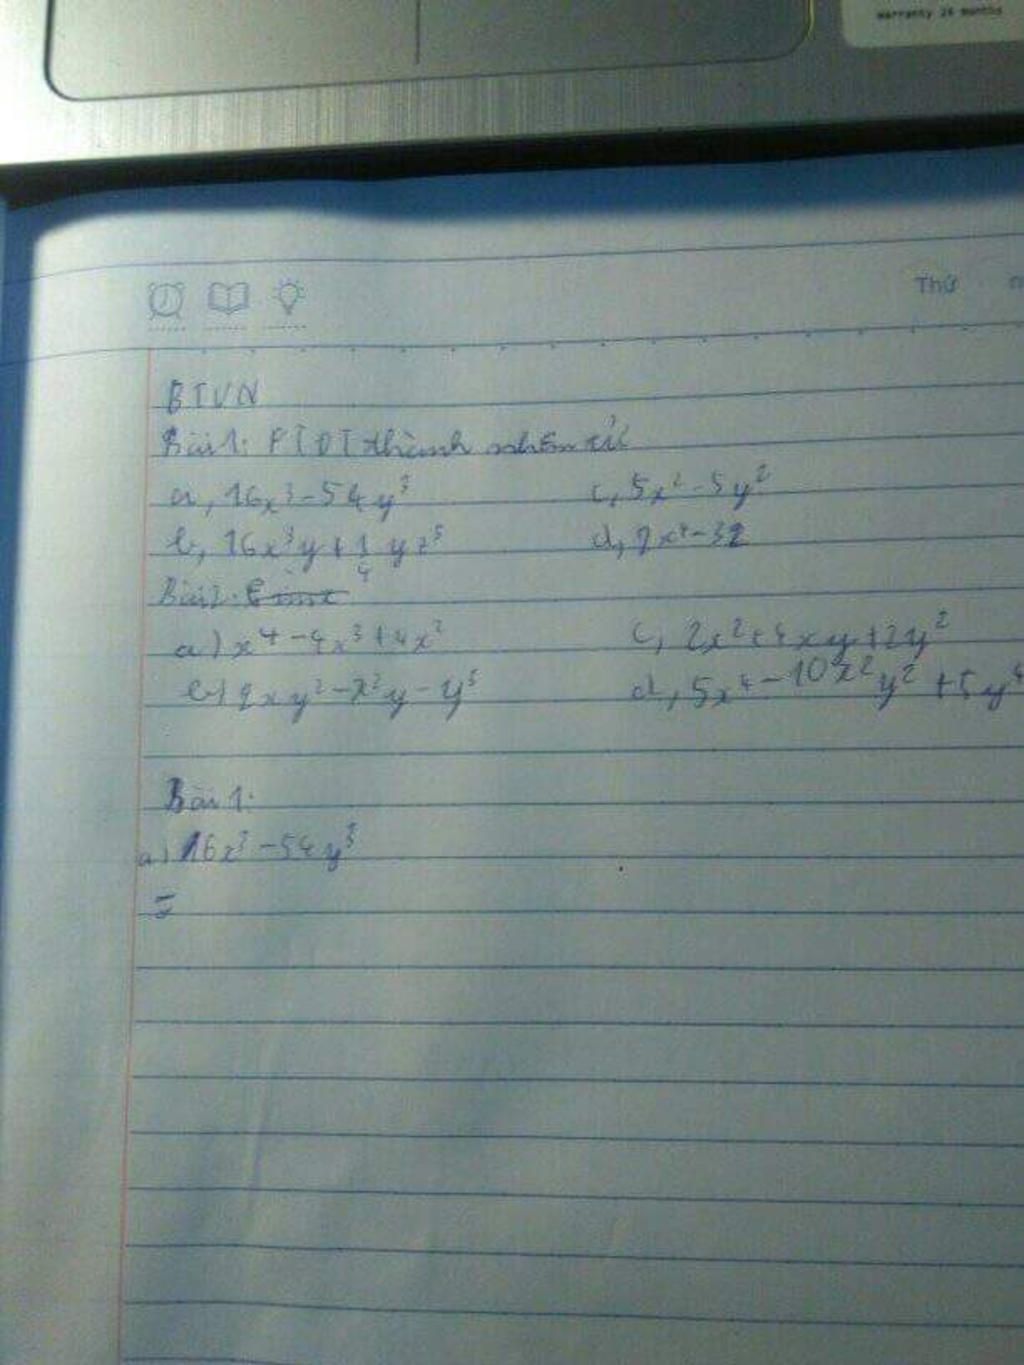 warranty 24 months
Thứ
BTVN
Bài 1: PTĐT thành nhân tử
a, 16x³ - 54y³ c, 5x² - 5y²
b, 16x³y + 1/4 yz³ d, 2x⁴ - 32
Bài 2:
a) x⁴ - 4x³ + 4x² c, 2x² + 4xy + 2y²
b) 2xy² - x²y - y³ d, 5x⁴ - 10x²y² + 5y⁴
Bài 1:
a) 16x³ - 54y³
=